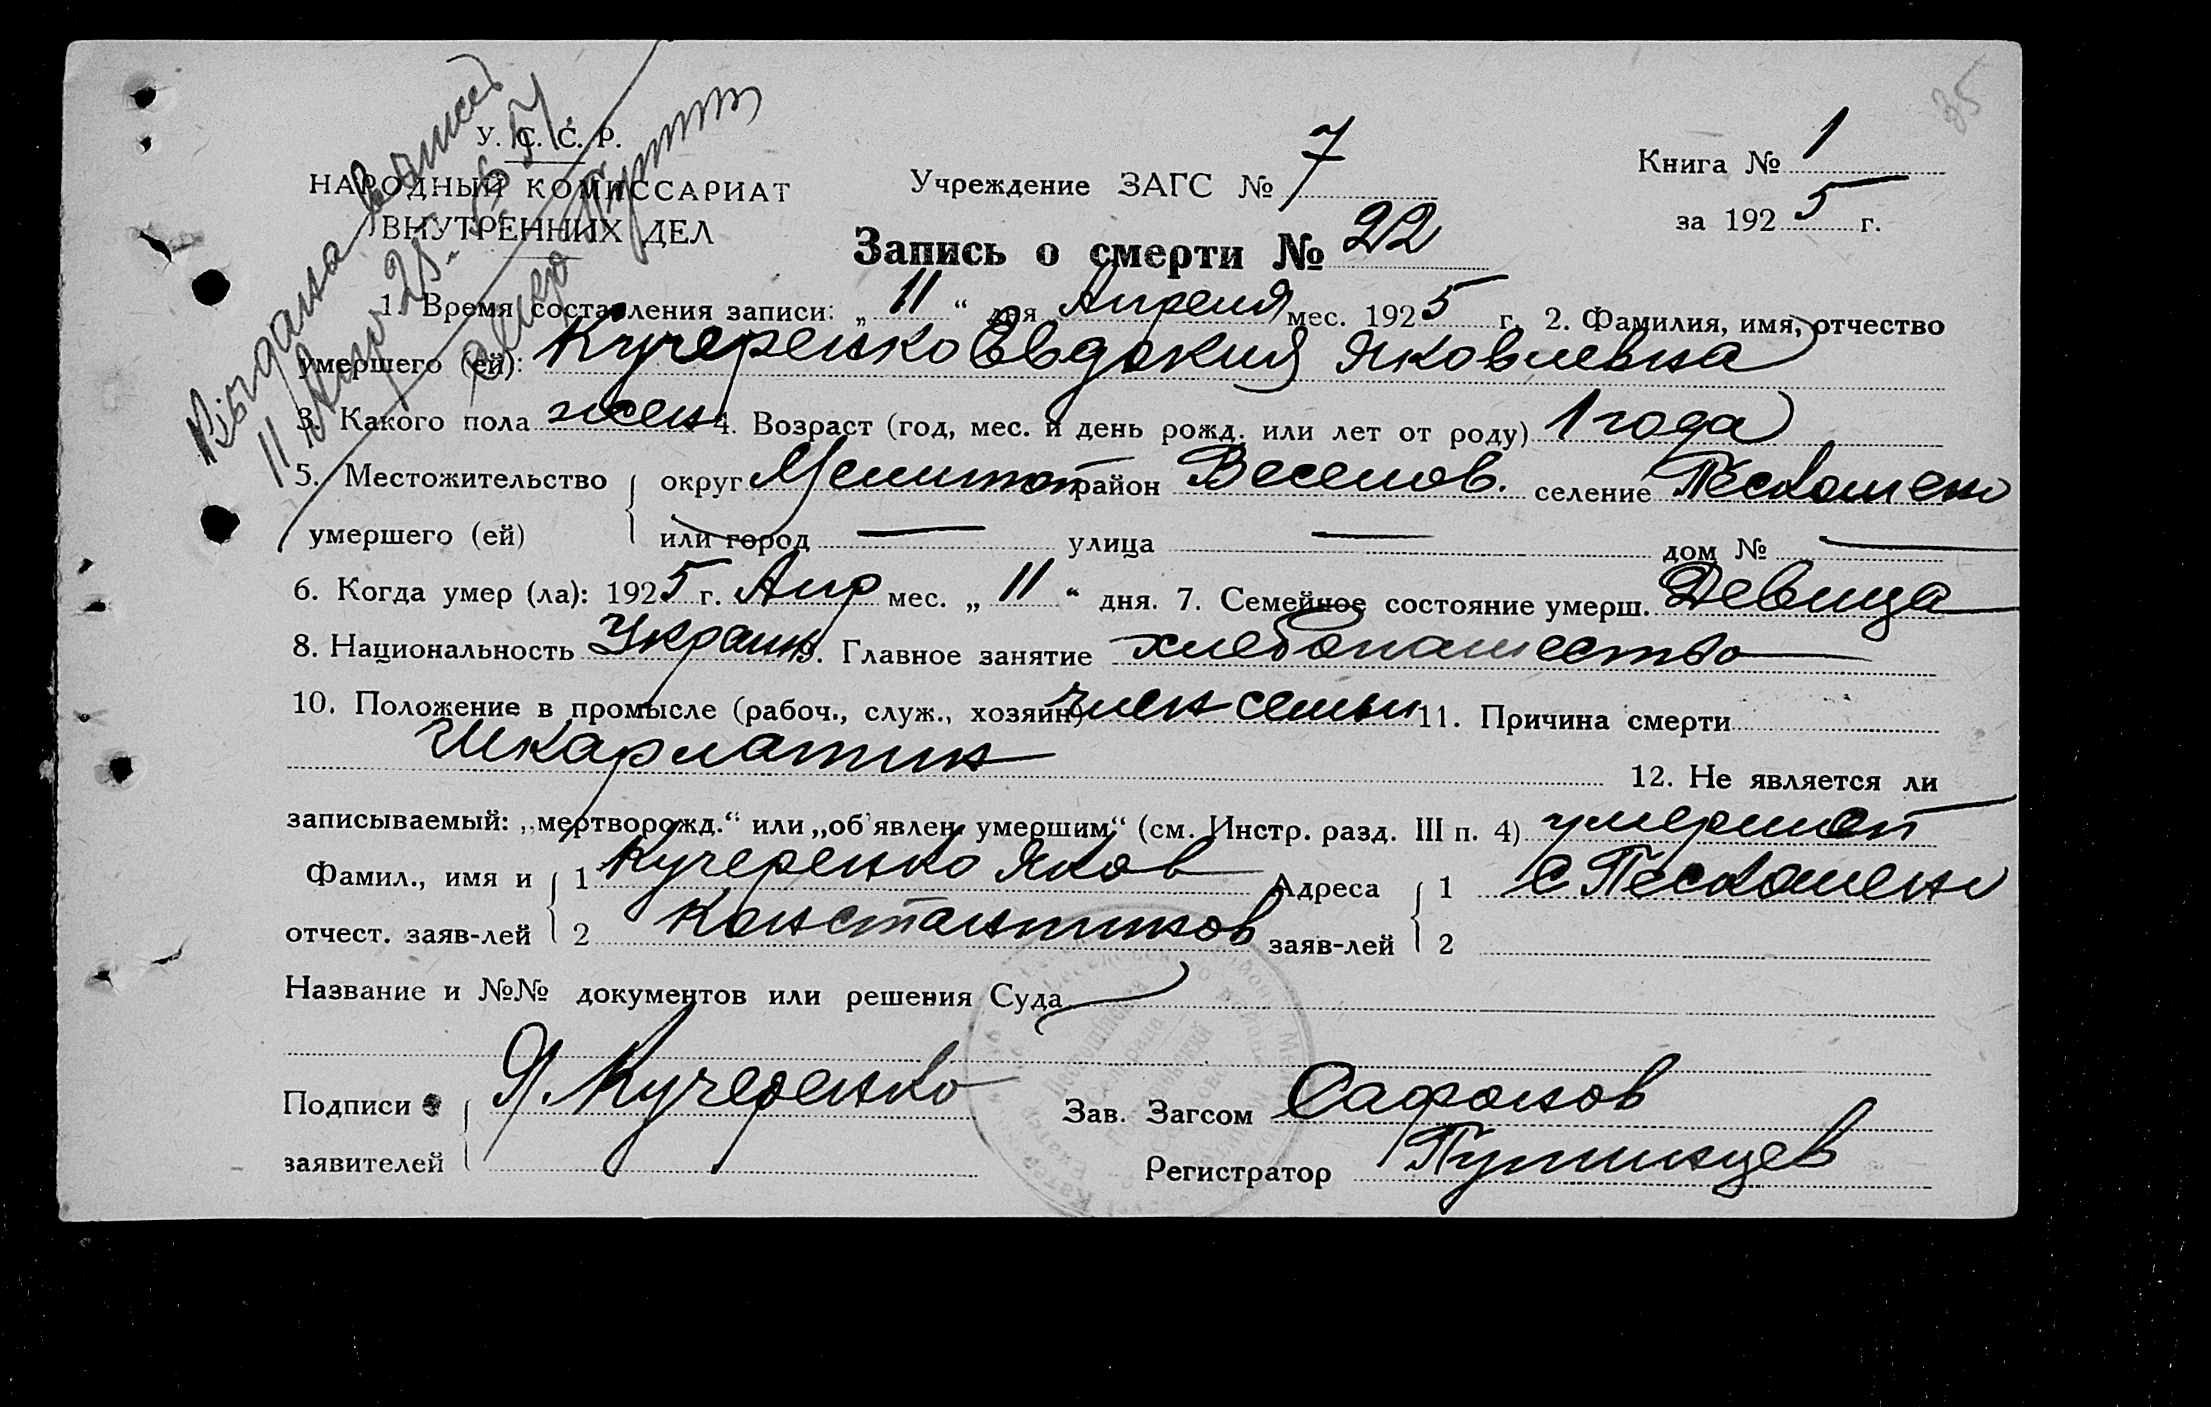 35
У. С. С. Р.
НАРОДНЫЙ КОМИССАРИАТ
ВНУТРЕННИХ ДЕЛ
Выдана выписка
11 Апр 25
Учреждение ЗАГС № 7
Книга № 1
за 1925 г.
Запись о смерти № 22
1. Время составления записи: „ 11 “ дня Апреля мес. 1925 г. 2. Фамилия, имя, отчество
умершего (ей): Кучеренко Евдокия Яковлевна
3. Какого пола жен 4. Возраст (год, мес. и день рожд. или лет от роду) 1 года
5. Местожительство округ Мелитоп район Веселов. селение Песчошено
умершего (ей) или город — улица — дом № —
6. Когда умер (ла): 1925 г. Апр мес. „ 11 “ дня. 7. Семейное состояние умерш. Девица
8. Национальность Украин 9. Главное занятие хлебопашество
10. Положение в промысле (рабоч., служ., хозяин) член семьи 11. Причина смерти
Шкарлатин
12. Не является ли
записываемый: „мертворожд.“ или „об'явлен умершим“ (см. Инстр. разд. III п. 4) умершей
Фамил., имя и 1 Кучеренко Яков Адреса 1 с
отчест. заяв-лей 2 Константинов заяв-лей 2
Название и №№ документов или решения Суда
Подписи Я. Кучеренко Зав. Загсом Сафонов
заявителей Регистратор Путинцев